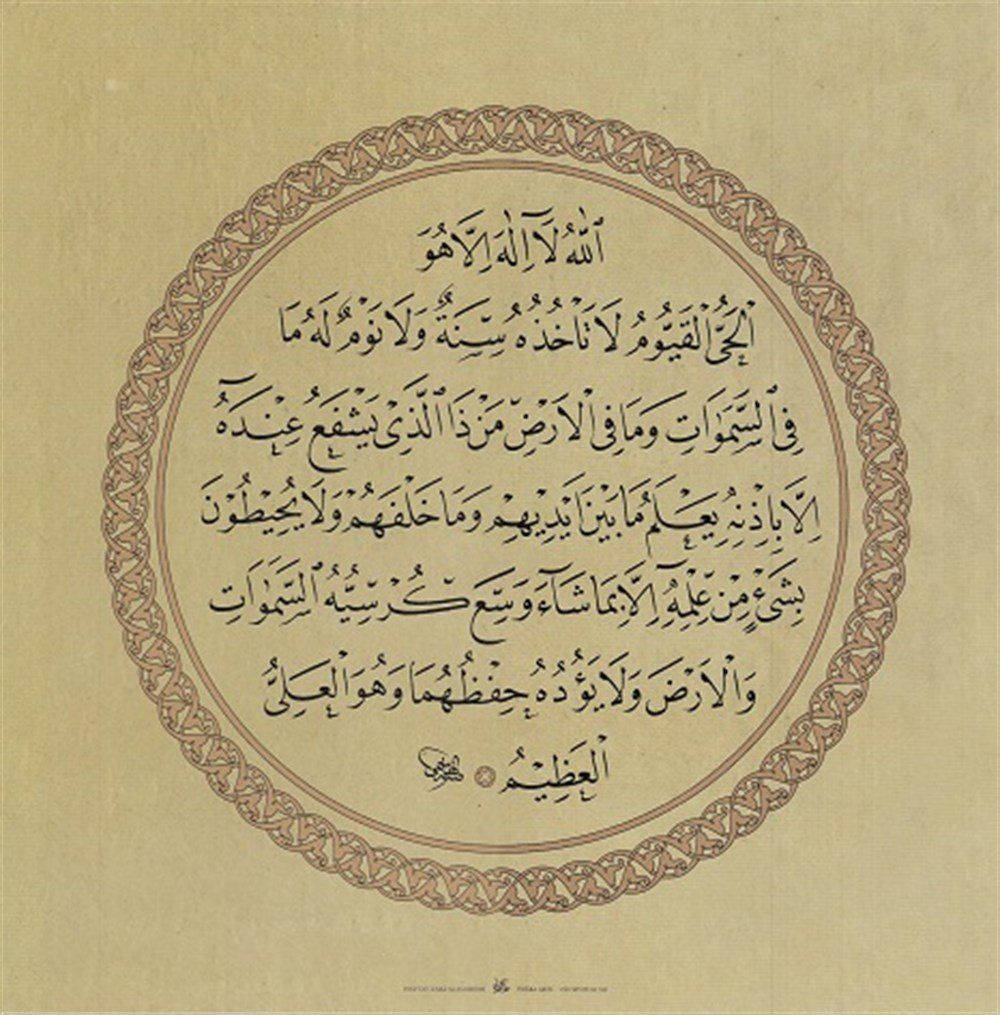 اَللّٰهُ لَآ اِلٰهَ اِلَّا هُوَ
اَلْحَيُّ الْقَيُّومُ لَا تَأْخُذُهُ سِنَةٌ وَلَا نَوْمٌ لَهُ مَا
فِي السَّمٰوَاتِ وَمَا فِي الْاَرْضِ مَنْ ذَا الَّذِيْ يَشْفَعُ عِنْدَهُٓ
اِلَّا بِاِذْنِهِ يَعْلَمُ مَا بَيْنَ اَيْدِيْهِمْ وَمَا خَلْفَهُمْ وَلَا يُحِيْطُوْنَ
بِشَيْءٍ مِنْ عِلْمِهِٓ اِلَّا بِمَا شَآءَ وَسِعَ كُرْسِيُّهُ السَّمٰوَاتِ
وَالْاَرْضَ وَلَا يَؤُدُهُ حِفْظُهُمَا وَهُوَ الْعَلِيُّ
الْعَظِيْمُ